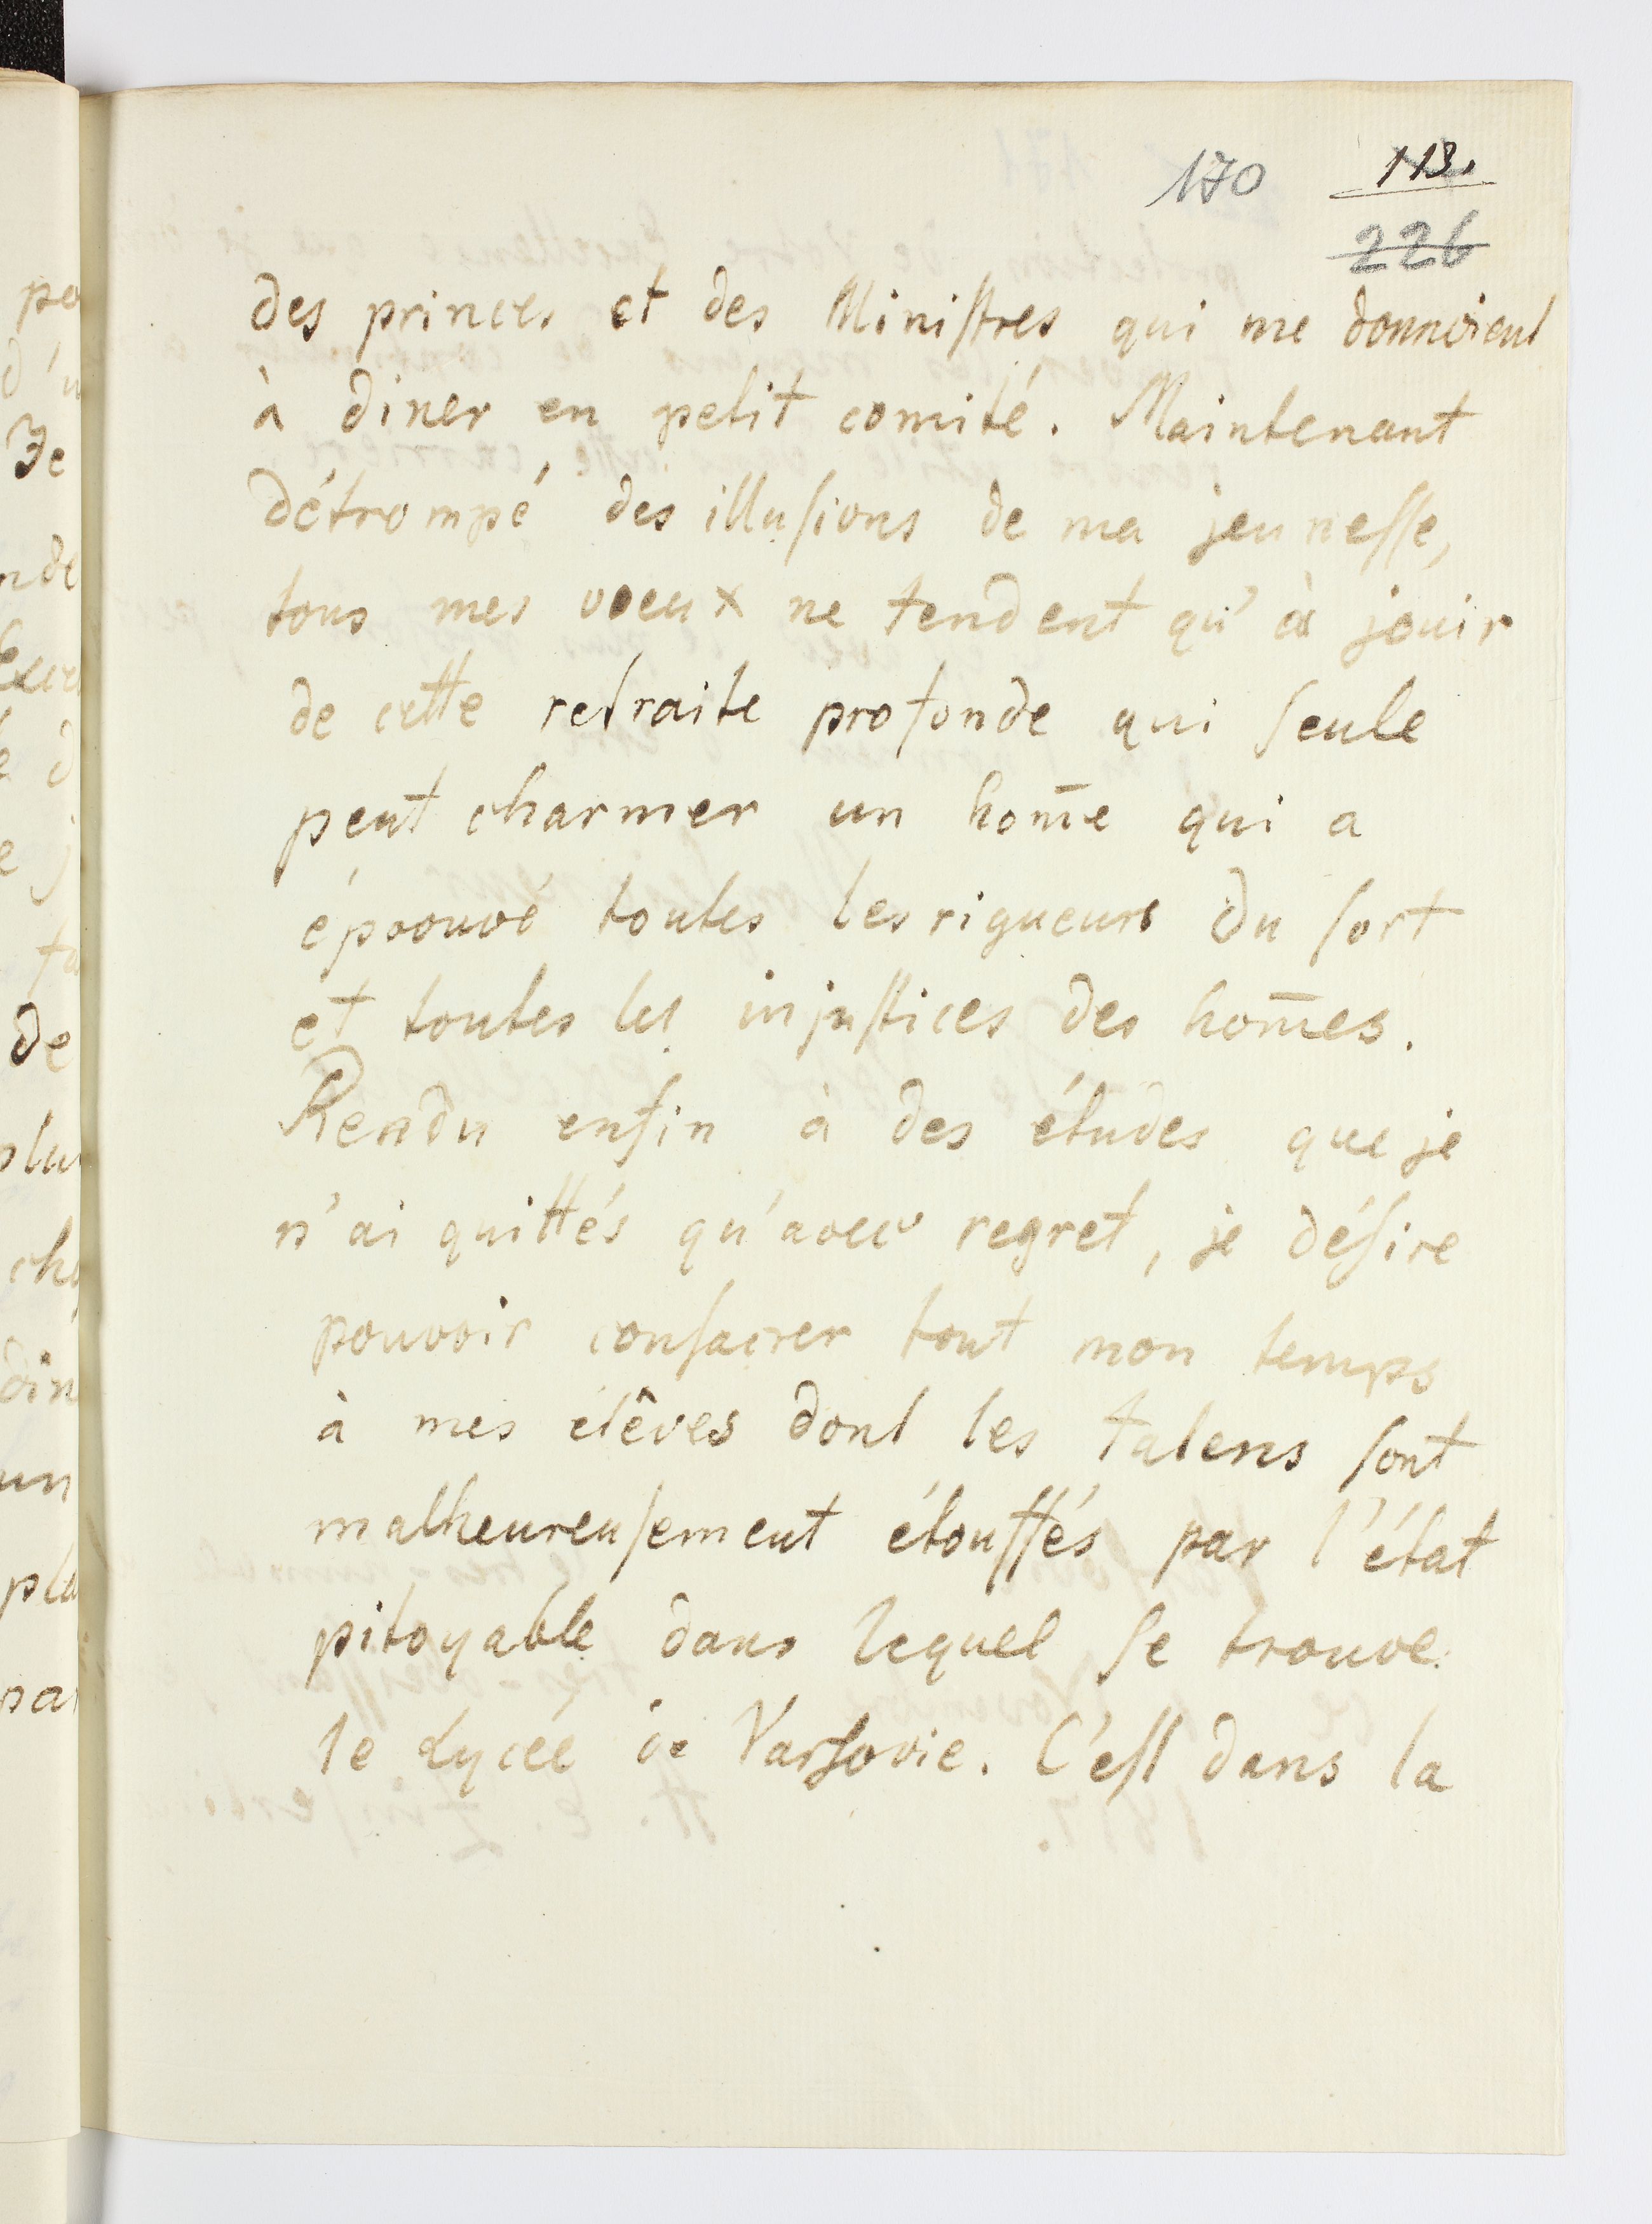 170 113.
226
des princes et des Miniſtres qui me donnoient
à diner en petit comité. Maintenant
détrompé des illuſions de ma jeuneſſe,
tous mes voeux ne tendent qu'à jouir
de cette retraite profonde qui ſeule
peut charmer un hom̄e qui a
éprouvé toutes les rigueurs du ſort
et toutes les injuſtices des hom̄es.
Rendu enfin à des études que je
n'ai quittés qu'avec regret, je déſire
pouvoir conſacrer tout mon temps
à mes élêves dont les talens ſont
malheureuſement étouffés par l'état
pitoyable dans lequel ſe trouve
le Lycée de Varſovie. C'eſt dans la